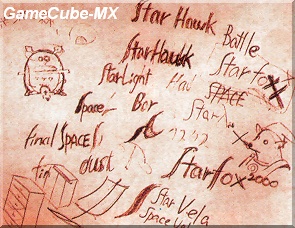 GameCube-MX
Star Hawk
Battle
StarHawk
Starfox
StarLight
Mad
SPACE
Space
Bor
Star
final SPACE
dust
Starfox
2000
Star Vela
Space